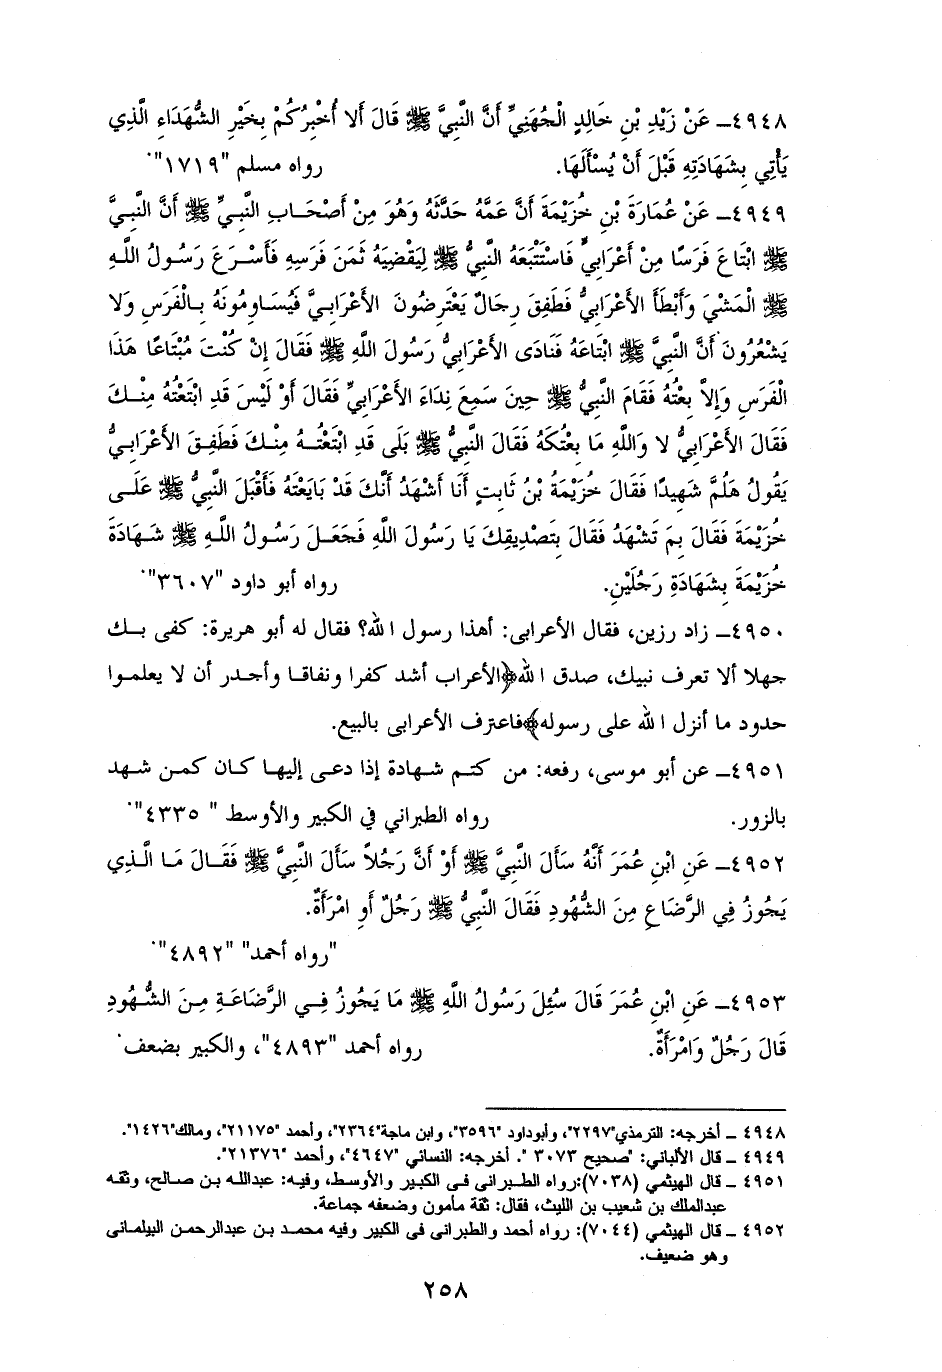 ٤٩٤٨ـ عَنْ زَيْدِ بْنِ خَالِدٍ الْجُهَنِيِّ أَنَّ النَّبِيَّ ﷺ قَالَ أَلا أُخْبِرُكُمْ بِخَيْرِ الشُّهَدَاءِ الَّذِي
يَأْتِي بِشَهَادَتِهِ قَبْلَ أَنْ يُسْأَلَهَا. رواه مسلم "١٧١٩".
٤٩٤٩ـ عَنْ عُمَارَةَ بْنِ خُزَيْمَةَ أَنَّ عَمَّهُ حَدَّثَهُ وَهُوَ مِنْ أَصْحَابِ النَّبِيِّ ﷺ أَنَّ النَّبِيَّ
ﷺ ابْتَاعَ فَرَسًا مِنْ أَعْرَابِيٍّ فَاسْتَتْبَعَهُ النَّبِيُّ ﷺ لِيَقْضِيَهُ ثَمَنَ فَرَسِهِ فَأَسْرَعَ رَسُولُ اللَّهِ
ﷺ الْمَشْيَ وَأَبْطَأَ الأَعْرَابِيُّ فَطَفِقَ رِجَالٌ يَعْتَرِضُونَ الأَعْرَابِيَّ فَيُسَاوِمُونَهُ بِالْفَرَسِ وَلا
يَشْعُرُونَ أَنَّ النَّبِيَّ ﷺ ابْتَاعَهُ فَنَادَى الأَعْرَابِيُّ رَسُولَ اللَّهِ ﷺ فَقَالَ إِنْ كُنْتَ مُبْتَاعًا هَذَا
الْفَرَسِ وَإِلاَّ بِعْتُهُ فَقَامَ النَّبِيُّ ﷺ حِينَ سَمِعَ نِدَاءَ الأَعْرَابِيِّ فَقَالَ أَوْ لَيْسَ قَدِ ابْتَعْتُهُ مِنْكَ
فَقَالَ الأَعْرَابِيُّ لا وَاللَّهِ مَا بِعْتُكَهُ فَقَالَ النَّبِيُّ ﷺ بَلَى قَدِ ابْتَعْتُهُ مِنْكَ فَطَفِقَ الأَعْرَابِيُّ
يَقُولُ هَلُمَّ شَهِيدًا فَقَالَ خُزَيْمَةُ بْنُ ثَابِتٍ أَنَا أَشْهَدُ أَنَّكَ قَدْ بَايَعْتَهُ فَأَقْبَلَ النَّبِيُّ ﷺ عَلَى
خُزَيْمَةَ فَقَالَ بِمَ تَشْهَدُ فَقَالَ بِتَصْدِيقِكَ يَا رَسُولَ اللَّهِ فَجَعَلَ رَسُولُ اللَّهِ ﷺ شَهَادَةَ
خُزَيْمَةَ بِشَهَادَةِ رَجُلَيْنِ. رواه أبو داود "٣٦٠٧".
٤٩٥٠ـ زاد رزين، فقال الأعرابى: أهذا رسول الله؟ فقال له أبو هريرة: كفى بك
جهلا ألا تعرف نبيك، صدق الله﴿الأعراب أشد كفرا ونفاقا وأجدر أن لا يعلموا
حدود ما أنزل الله على رسوله﴾فاعترف الأعرابى بالبيع.
٤٩٥١ـ عن أبو موسى، رفعه: من كتم شهادة إذا دعى إليها كان كمن شهد
بالزور. رواه الطبراني في الكبير والأوسط " ٤٣٣٥".
٤٩٥٢ـ عَنِ ابْنِ عُمَرَ أَنَّهُ سَأَلَ النَّبِيَّ ﷺ أَوْ أَنَّ رَجُلاً سَأَلَ النَّبِيَّ ﷺ فَقَالَ مَا الَّذِي
يَجُوزُ فِي الرَّضَاعِ مِنَ الشُّهُودِ فَقَالَ النَّبِيُّ ﷺ رَجُلٌ أَوِ امْرَأَةٌ.
"رواه أحمد" "٤٨٩٢".
٤٩٥٣ـ عَنِ ابْنِ عُمَرَ قَالَ سُئِلَ رَسُولُ اللَّهِ ﷺ مَا يَجُوزُ فِي الرَّضَاعَةِ مِنَ الشُّهُودِ
قَالَ رَجُلٌ وَامْرَأَةٌ. رواه أحمد "٤٨٩٣"، والكبير بضعف.
٤٩٤٨ ـ أخرجه: الترمذي"٢٢٩٧"، وأبوداود "٣٥٩٦"، وابن ماجة"٢٣٦٤"، وأحمد "٢١١٧٥"، ومالك"١٤٢٦".
٤٩٤٩ ـ قال الألباني: "صحيح ٣٠٧٣ ". أخرجه: النسائي "٤٦٤٧"، وأحمد "٢١٣٧٦".
٤٩٥١ ـ قال الهيثمي (٧٠٣٨):رواه الطبرانى فى الكبير والأوسط، وفيه: عبدالله بن صالح، وثقه
عبدالملك بن شعيب بن الليث، فقال: ثقة مأمون وضعفه جماعة.
٤٩٥٢ ـ قال الهيثمي (٧٠٤٤): رواه أحمد والطبرانى فى الكبير وفيه محمد بن عبدالرحمن البيلمانى
وهو ضعيف.
٢٥٨